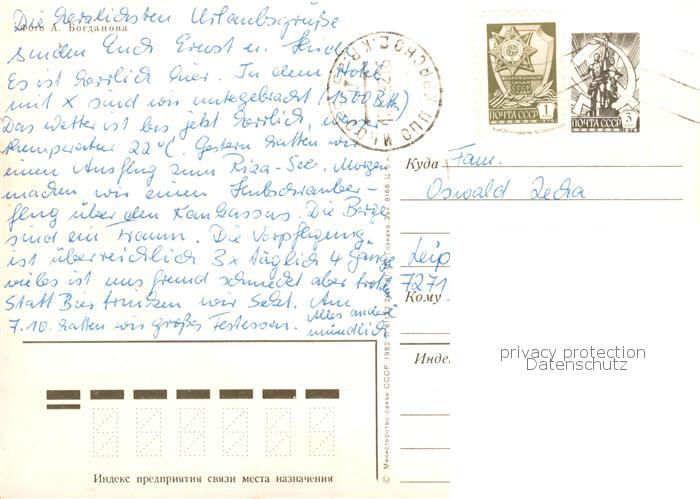 Die herzlichsten Urlaubsgrüße
Фото А. Богданова
senden Euch Ernst u.
Es ist herrlich hier. In dem Hotel
mit X sind wir untergebracht (1500 Betten)
Das Wetter ist bis jetzt herrlich,
temperatur 22°C. Gestern hatten wir
einen Ausflug zum Riza-See. Morgen
machen wir einen Hubschrauber-
flug über den Kaukasus. Die Berge
sind ein Traum. Die Verpflegung
ist überreichlich 3x täglich 4 Gänge
vieles ist uns fremd schmeckt aber trotzdem
Statt Bier trinken wir Sekt. Am
7.10. hatten wir großes Festessen. Alles andere
mündlich
ПОЧТА СССР 1
ПОЧТА СССР 3
Куда Fam.
Oswald Zecha
Leip
7271
Кому
Инде
privacy protection
Datenschutz
© Министерство связи СССР. 1982
Индекс предприятия связи места назначения